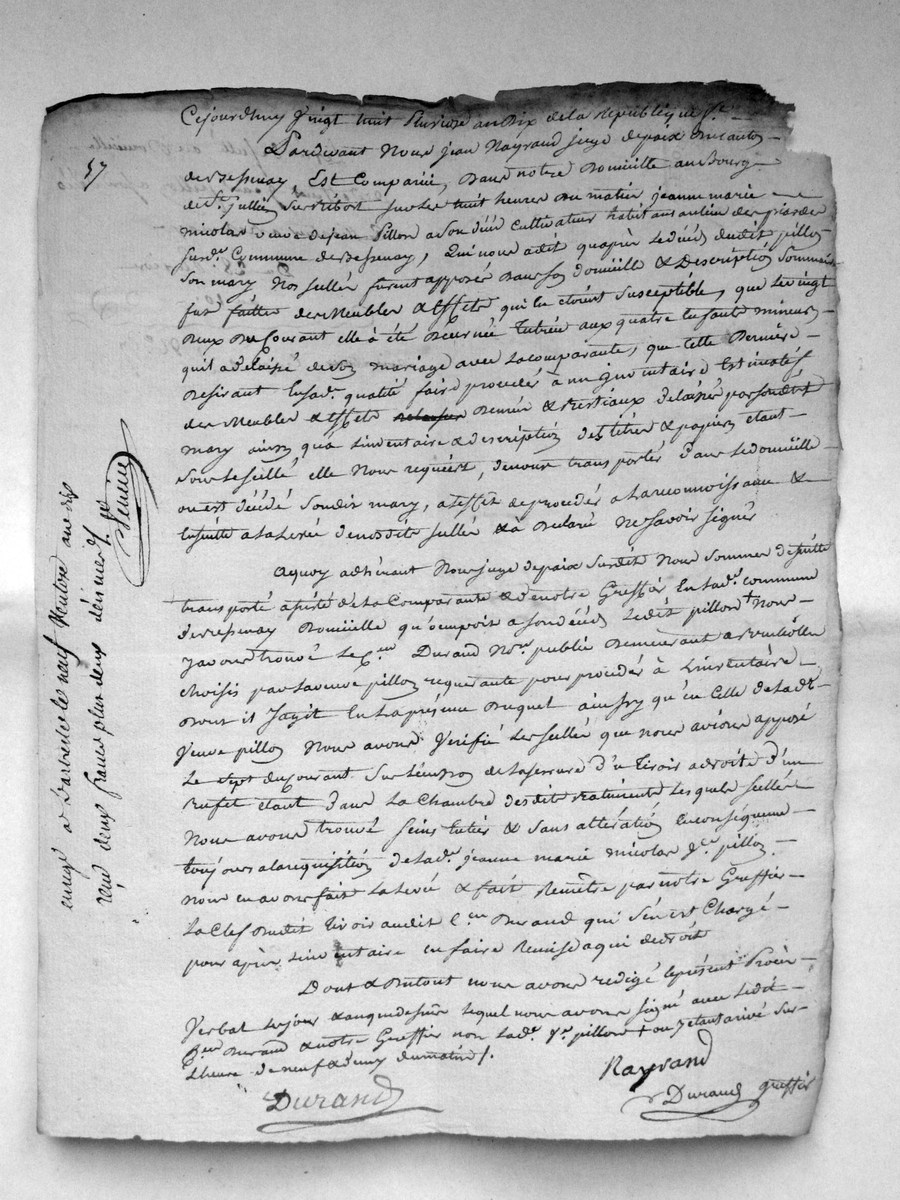 57
Cejourdhuy vingt huit pluviose an dix de la Republique fse
Pardevant Nous jean Nayrand juge depaix du canton
de Bessenay Est Comparüe, Dans notre Domicille au Bourg
de St jullien sur Bibost sur les huit heures du matin jeanne marie
nicolas veuve de jean Pillon a son déçu cultivateur habitans au lieu des
susd. Commune de Bessenay, Qui nous a dit qu'après le décès dudit pillon
son mary Nos scellés furent apposés Dans son domicille & Description Sommaire
fut faitte des Meubles & Effets qui les etoient susceptible, que le vingt
deux du Courant elle a été tutrice aux quatre enfants mineurs
quil a delaissé de son mariage avec la comparante, que cette Derniere
Desirant en sad. qualité faire procedér a un inventaire Estimatif
des Meubles & Effets Denrée & Bestiaux delaissés par sondit
mary ainsy qu'a l'inventaire & description des titres & papiers etant
sous le scellé elle Nous requiert, de nous transporter Dans le domicille
ou est décédé son dit mary, a l'effet de procéder a la reconnoissance &
ensuitte a la levée de nosdits scellés & a Declaré Ne savoir signér
Aquoy adhérant Nous juge depaix susdit Nous sommes de suitte
transporté assisté de la Comparante & de notre Greffier En lad. commune
de Bessenay Domicille qu'occupoit a son décès ledit pillon + Nous
y avons trouvé le Cen Durand Nre public Demeurant a
choisis par la veuve pillon requerante pour procedér à L'inventaire
Dont il s'agit En la présence duquel ainsy qu'en celle de lad.
Veuve pillon Nous avons Verifié les scellés que nous avions apposé
Le sept du courant sur l'ecusson de la serrure d'un tiroir a droite d'un
Bufet etant Dans la Chambre desdit Batiments lesquels scellés
Nous avons trouvé seins entier & sans alteration en consequence
toujours a la requisition de lad. jeanne marie nicolas Ve pillon
nous en avons fait la levée & fait Remettre par notre Greffier
La Clef dudit tiroir audit Cen Durand qui s'en est Chargé
pour après l'inventaire en faire Remise a qui de droit
Dont & du tout nous avons redigé le présent Procès
Verbal les jour & an que dessus lequel nous avons signé avec ledit
Cen Durand & notre Greffier non lad. Ve pillon + ou y etant arivé sur
L'heure de neuf du matin
Nayrand
Durand
Durand greffier
enregé a Larbresle le neuf Ventose an dix
reçu deux francs plus deux decimes